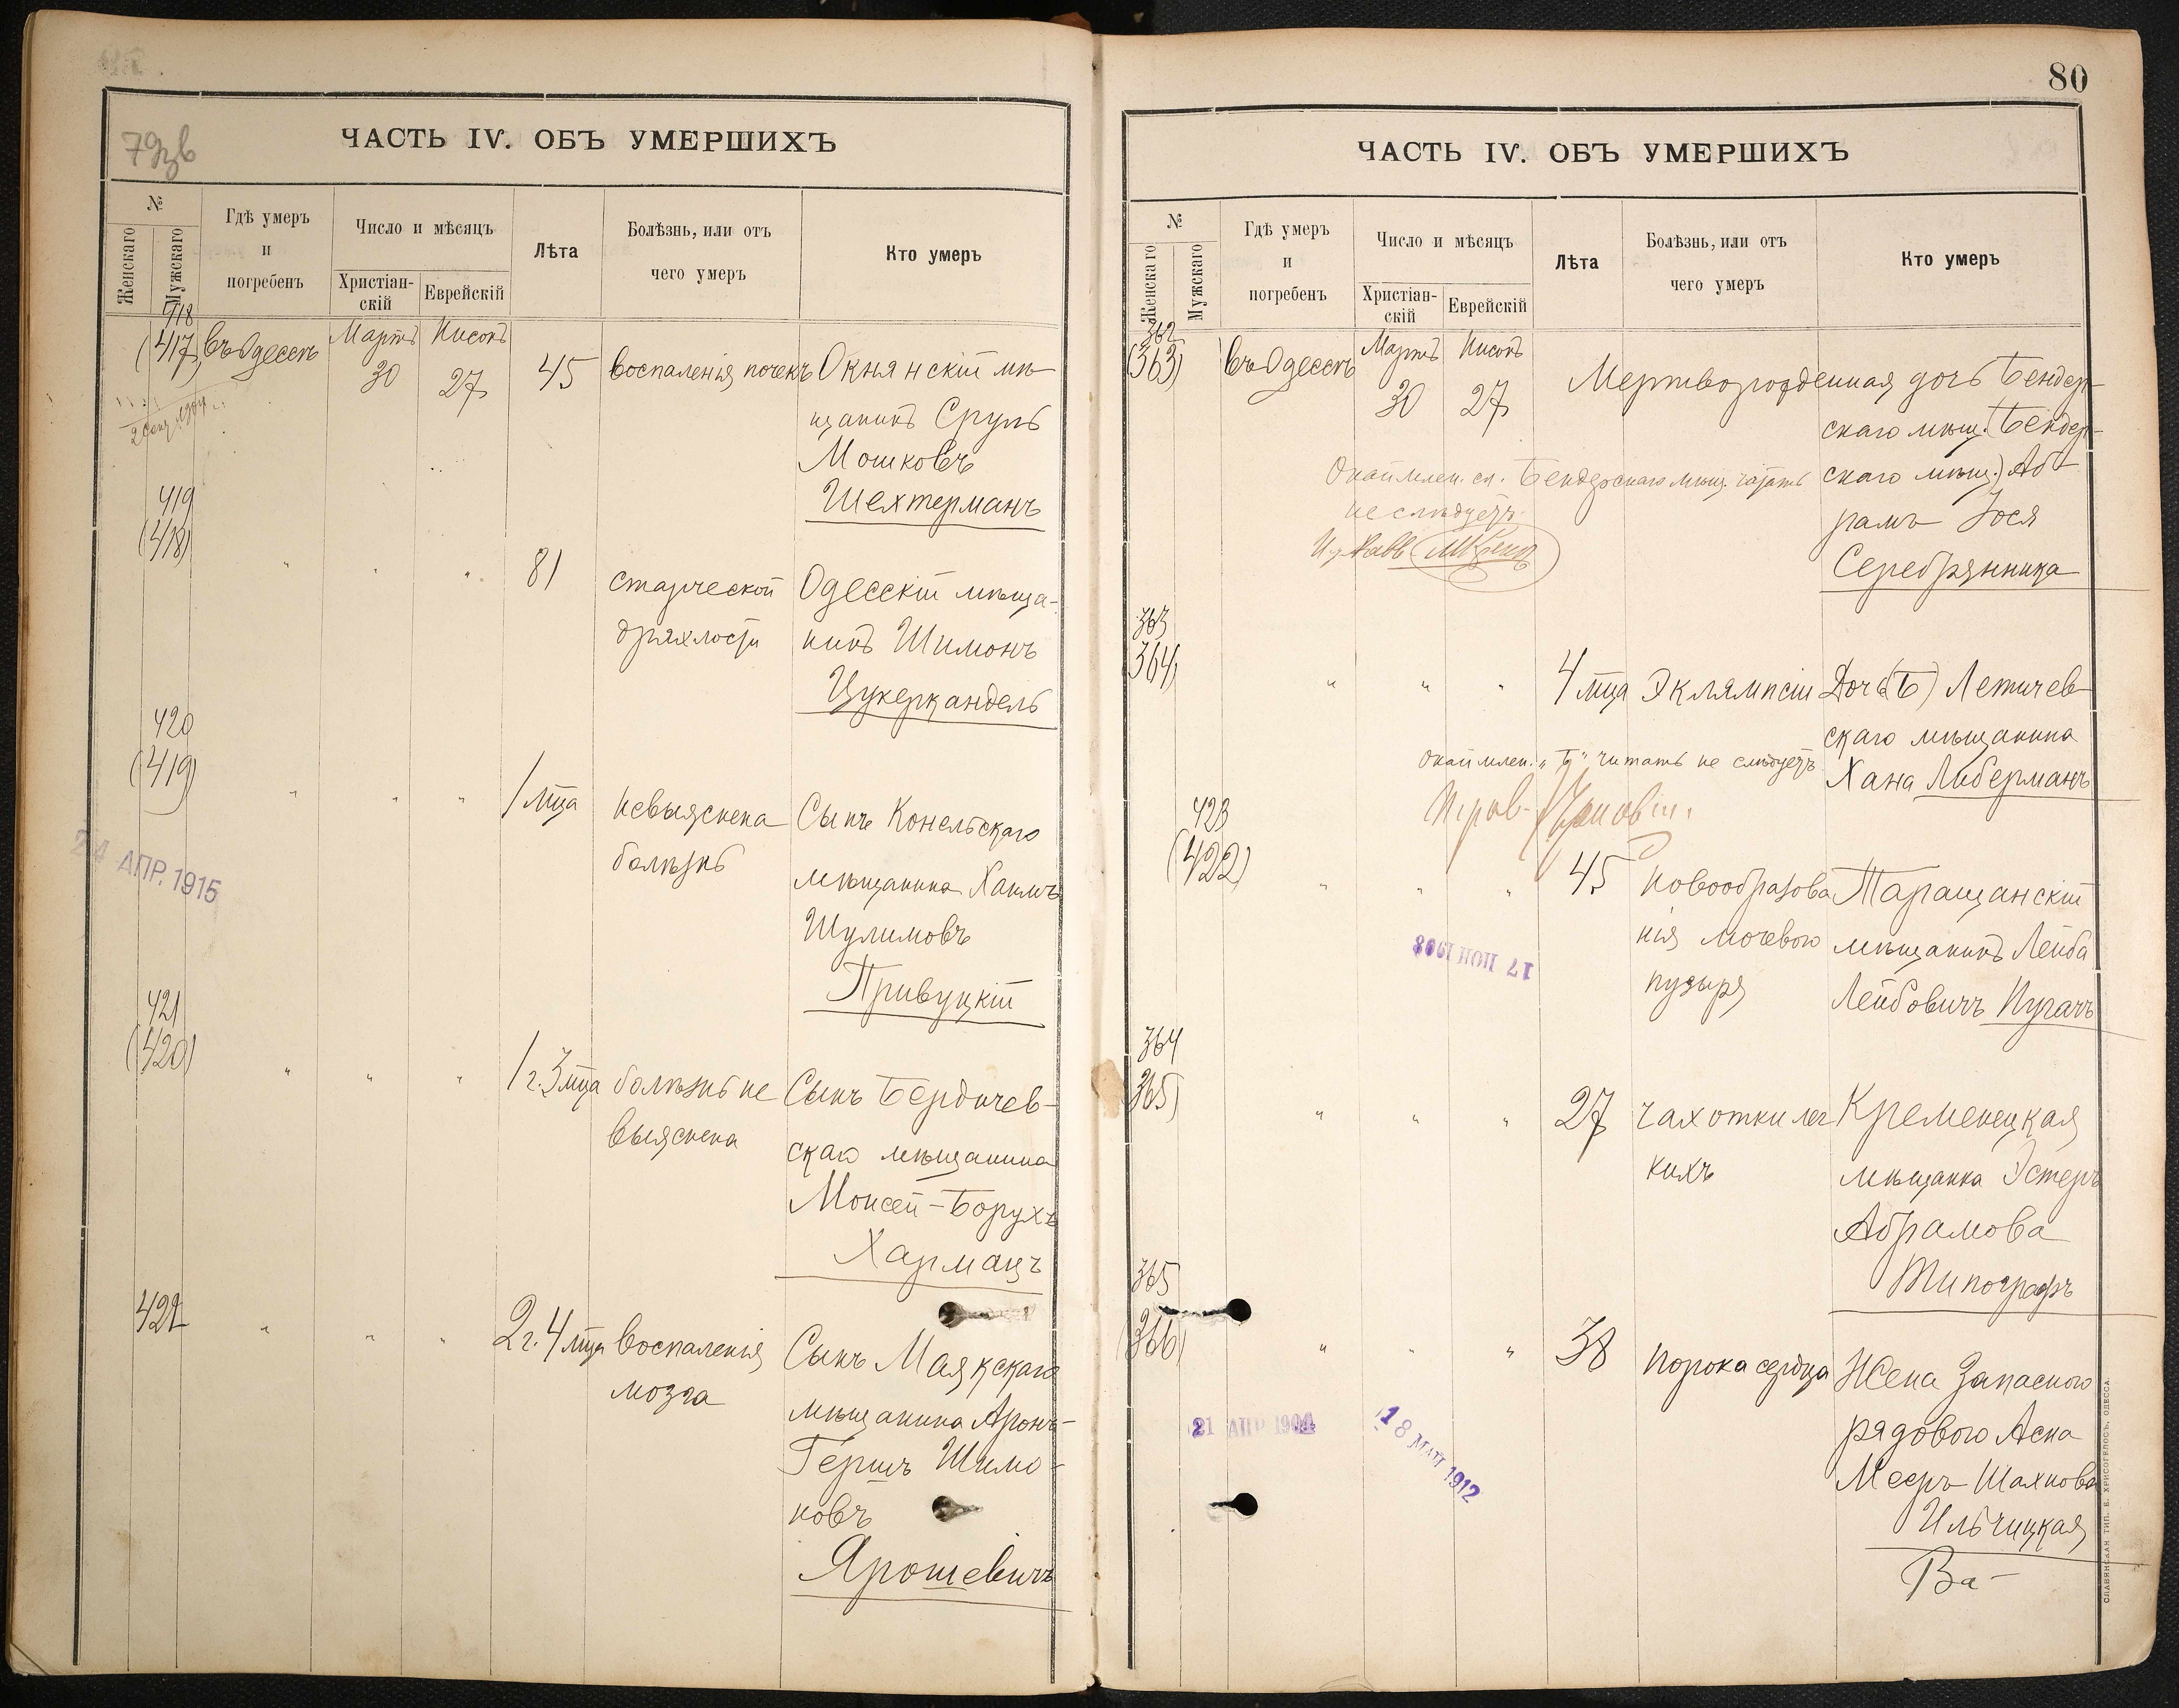 79зв
ЧАСТЬ IV. ОБЪ УМЕРШИХЪ
№
Женскаго
Мужскаго
Гдѣ умеръ
и
погребенъ
Число и мѣсяцъ
Христіан-
скій
Еврейскій
Лѣта
Болѣзнь, или отъ
чего умеръ
Кто умеръ
418
(417)
въ Одессѣ
Мартъ
30
Нисонъ
27
45
воспаленія почекъ
Окнянскій мѣ-
щанинъ Сруль
Мошковъ
Шехтерманъ
419
(418)
" " "
81
старческой
дряхлости
Одесскій мѣща-
нинъ Шимонъ
Цукеркандель
420
(419)
" " "
1 мца
невыяснена
болѣзнь
Сынъ Конельскаго
мѣщанина Хаимъ
Шулимовъ
Привуцкій
24 АПР. 1915
421
(420)
" " "
1 г. 3 мца
болѣзнь не
выяснена
Сынъ Бердичев-
скаго мѣщанина
Моисей-Борухъ
Харманъ
421
" " "
2 г. 4 мца
воспаленія
мозга
Сынъ Маякскаго
мѣщанина Аронъ-
Гершъ Шимо-
новъ
Ярошевичъ
80
ЧАСТЬ IV. ОБЪ УМЕРШИХЪ
№
Женскаго
Мужскаго
Гдѣ умеръ
и
погребенъ
Число и мѣсяцъ
Христіан-
скій
Еврейскій
Лѣта
Болѣзнь, или отъ
чего умеръ
Кто умеръ
362
(363)
въ Одессѣ
Мартъ
30
Нисонъ
27
Мертворожденная дочь Бендер-
скаго мѣщ. (Бендер-
скаго мѣщ.) Аб-
рамъ Іося
Серебрянника
Окаймлен. сл. Бендерскаго мѣщ. читать
не слѣдуетъ
363
364)
" " "
4 мца
Эклямпсіи
Дочь (Б) Летичев-
скаго мѣщанина
Хана Либерманъ
окаймлен. „Б" читать не слѣдуетъ
423
(422)
" " "
45
новообразова
нія мочевого
пузыря
Таращанскій
мѣщанинъ Лейба
Лейбовичъ Пугачъ
17 ІЮН 1908
364
365)
" " "
27
чахотки лег
кихъ
Кременецкая
мѣщанка Эстеръ
Абрамова
Типографъ
365
(366)
" " "
38
порока сердца
Жена Запасного
рядового Асна
Мееръ Шахнова
Ильчицкая
Ва-
21 АПР 1904
18 МАЙ 1912
СЛАВЯНСКАЯ ТИП. Е. ХРИСОГЕЛОСЪ, ОДЕССА.